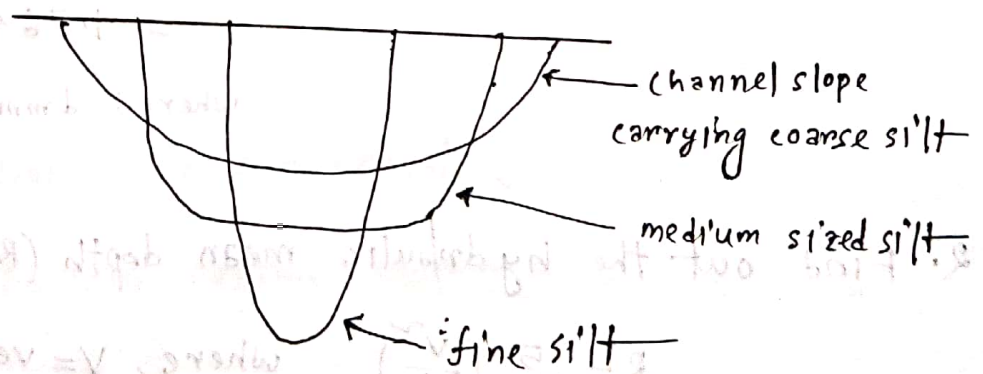 channel slope
carrying coarse silt
medium sized silt
fine silt